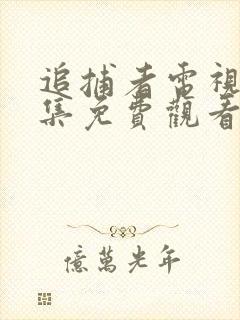 追捕者電視
集免費觀看
億萬光年